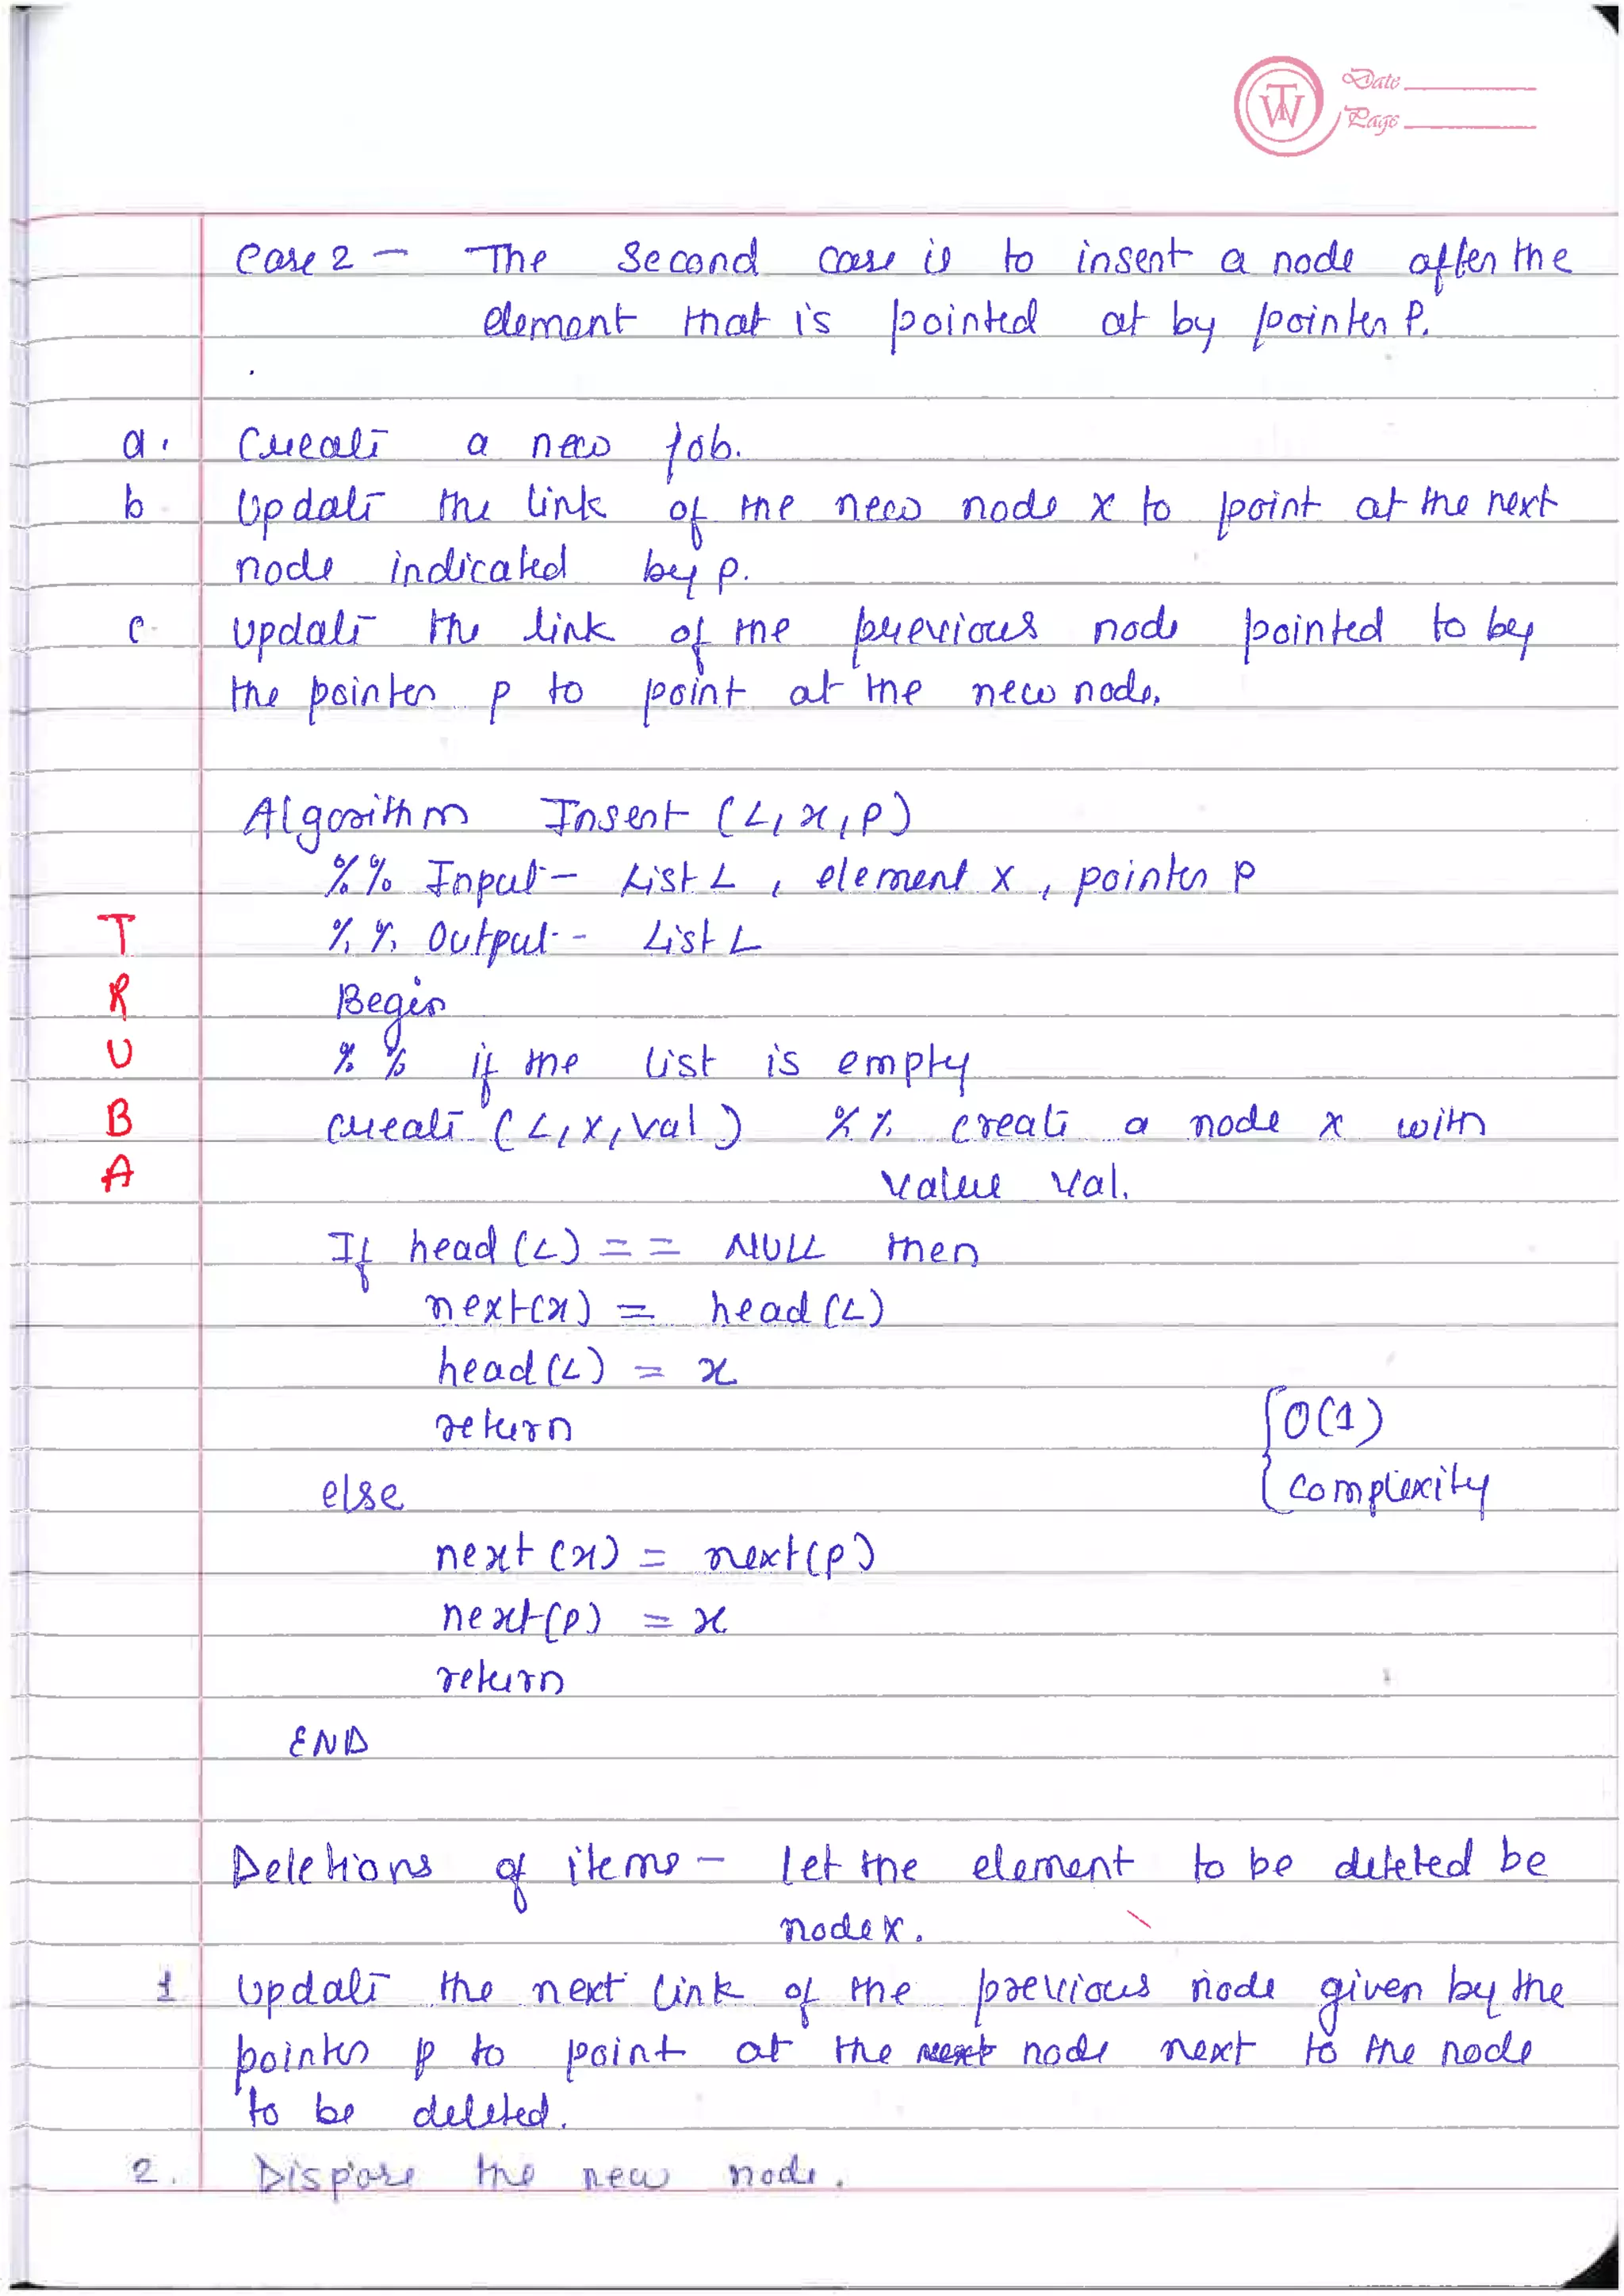 TW Date
Page
Case 2 - The Second case is to insert a node after the
element that is pointed at by pointer P.
a. Create a new job.
b Update the link of the new node x to point at the next
node indicated by p.
c. Update the link of the previous node pointed to by
the pointer p to point at the new node.
Algorithm Insert (L, x, P)
%% Input - List L , element x , pointer p
%% Output - List L
Begin
%% if the list is empty
create (L, x, val) %% create a node x with
value val.
If head (L) == NULL then
next(x) = head (L)
head (L) = x
return
else
next (x) = next(p)
next(p) = x
return
END
O(1)
complexity
T
R
U
B
A
Deletions of items - let the element to be deleted be
node x.
1 Update the next link of the previous node given by the
pointer p to point at the node next to the node
to be deleted.
2. Dispose the new node.